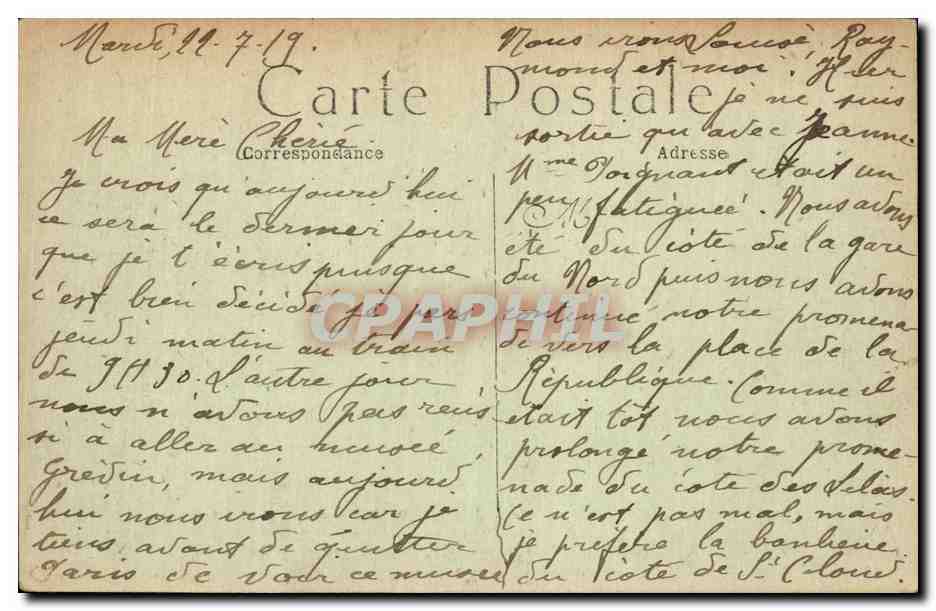 Mardi, 22-7-19.
Carte Postale
Correspondance
Adresse
CPAPHIL
Ma Merè Chérie
Je crois qu'aujourd'hui
ce serà le dernier jour
que je t'écris puisque
c'est bien décidé je pars
jeudi matin au train
de 9H30. L'autre jour
nous n'avons pas reus-
si à aller au museé
Grévin, mais aujourd
hui nous irons car je
tiens, avant de quitter
Paris de voir ce museé
Nous irons Louisé, Ray-
mond et moi. Hier
je ne suis
sortie qu'avec Jeanne.
Mme Poignant était un
peu fatigueé. Nous avons
été du coté de la gare
du Nord puis nous avons
continué notre promena-
de vers la place de la
République. Comme il
était tôt nous avons
prolongé notre prome-
nade du coté des Lilas.
Ce n'est pas mal, mais
je préfère la banlieue
du coté de St Cloud.